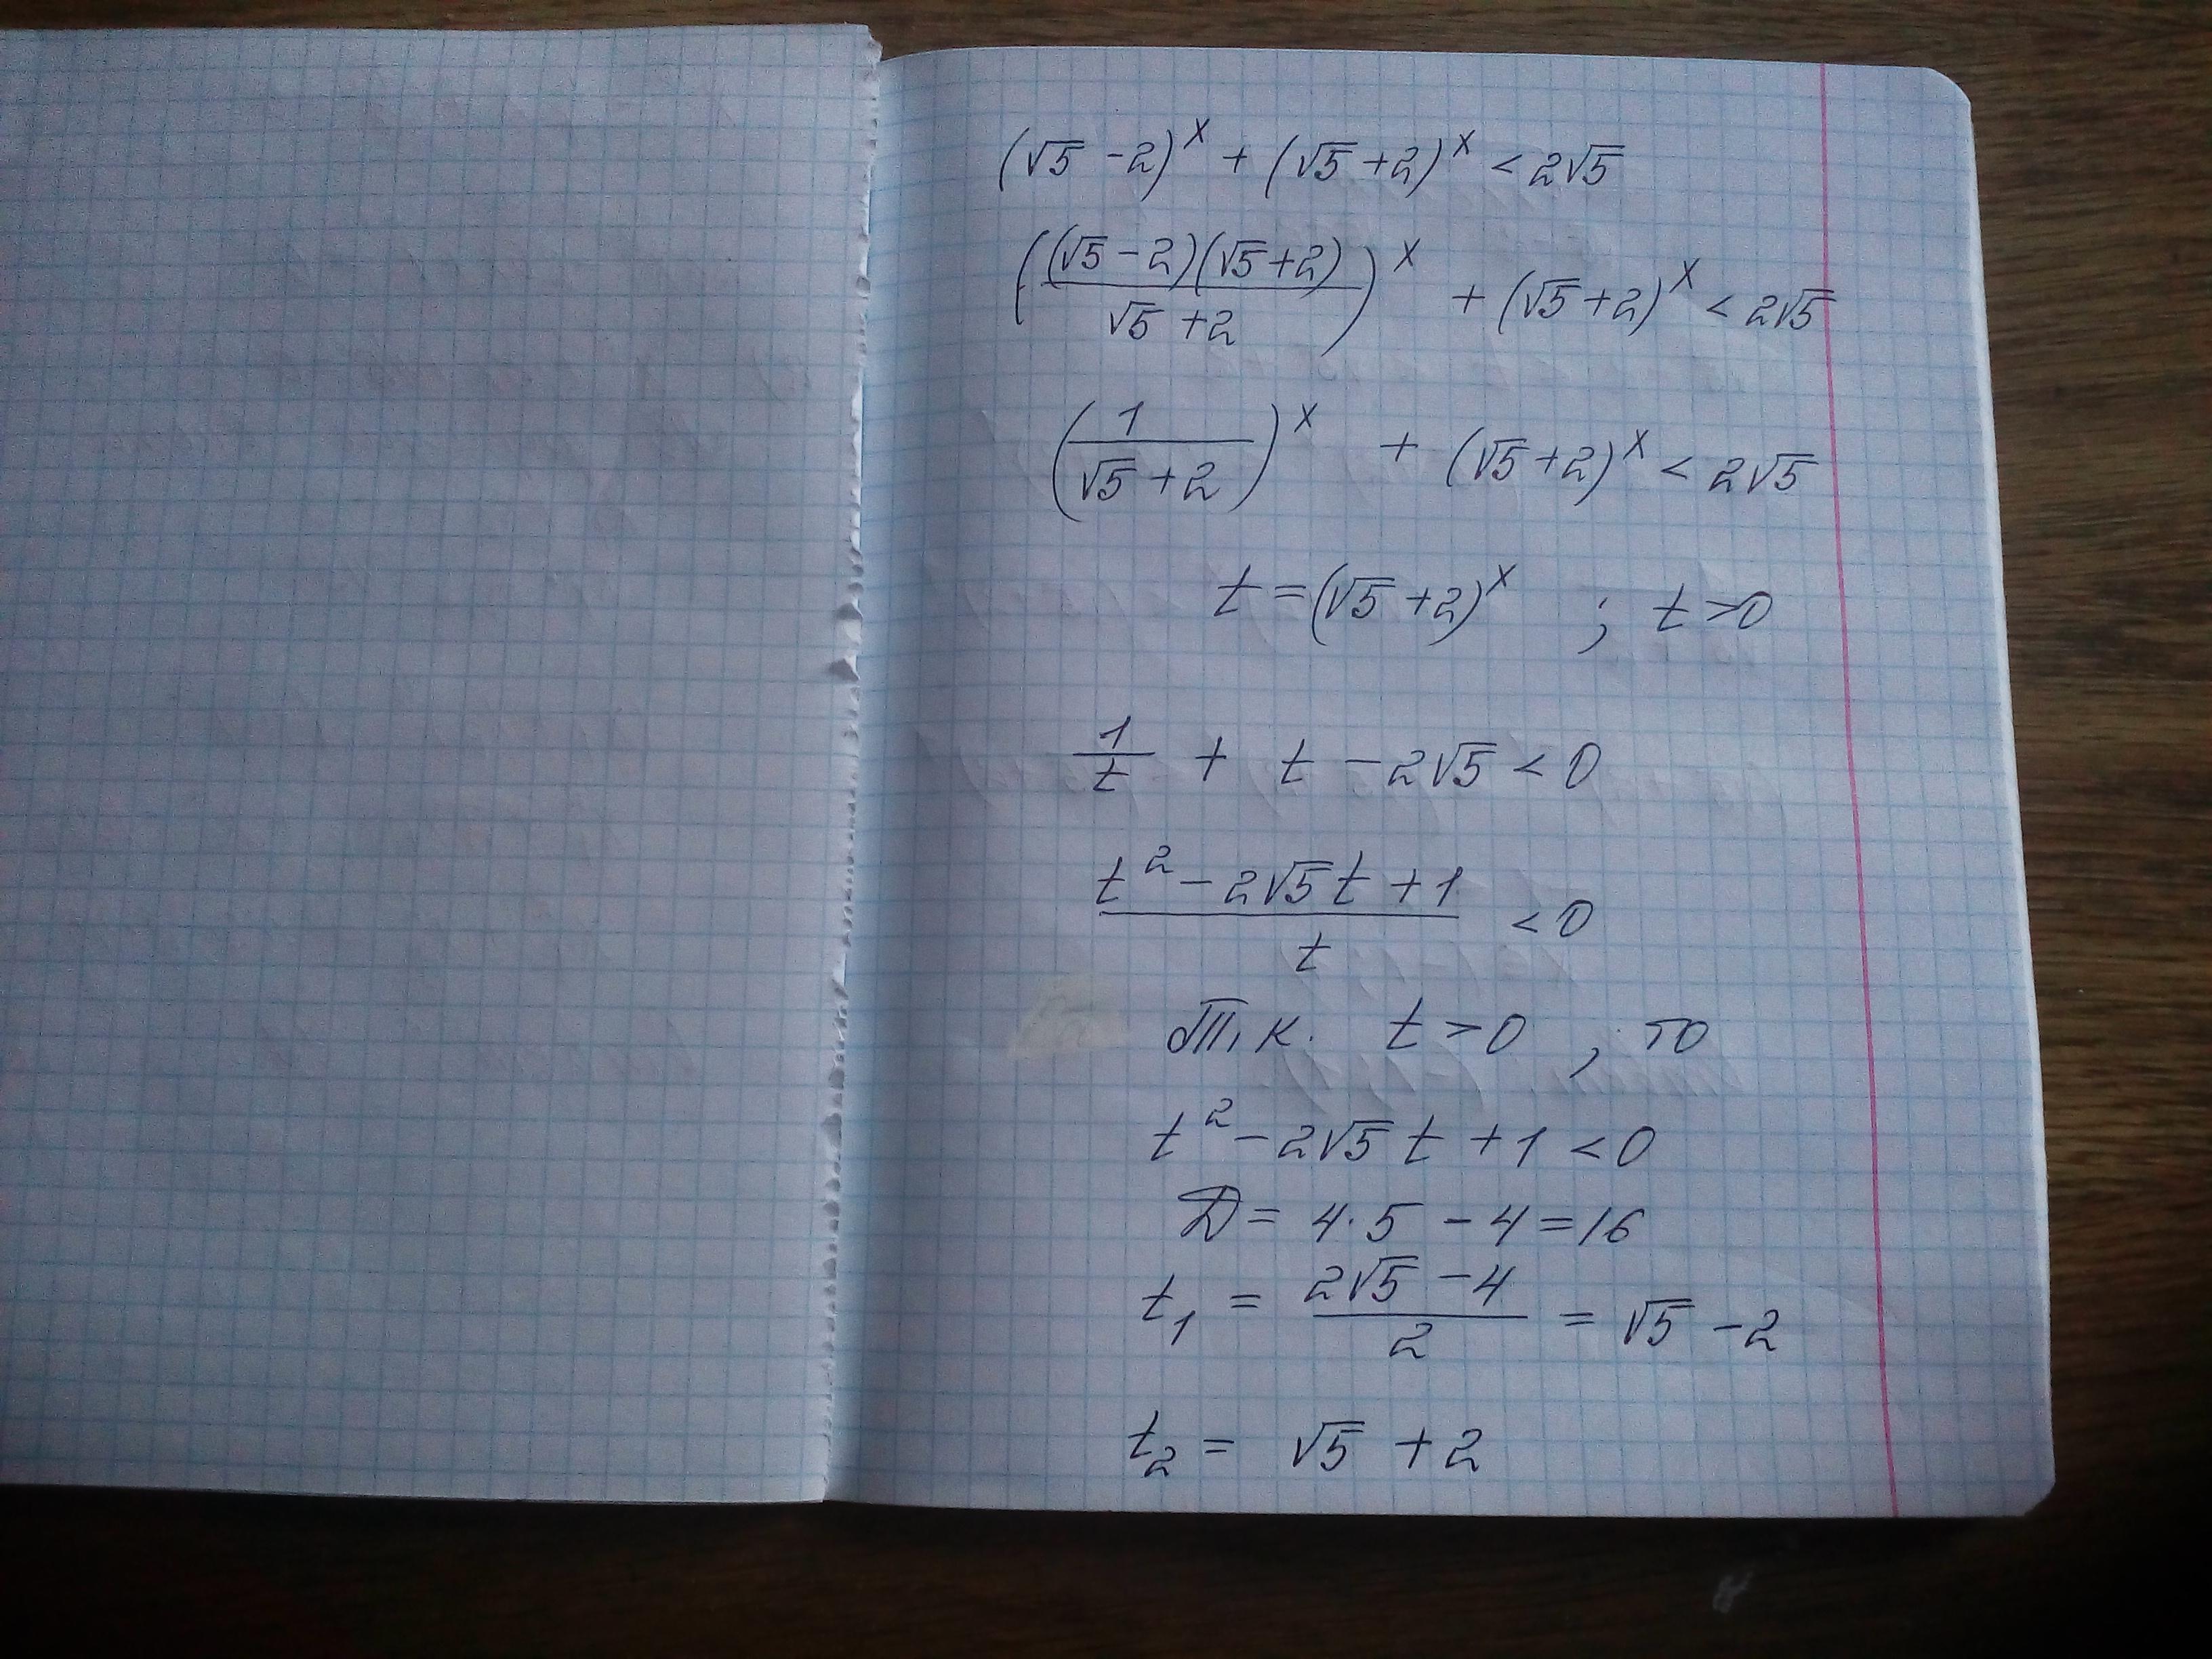 (√5 - 2)^x + (√5 + 2)^x < 2√5
((√5 - 2)(√5 + 2) / (√5 + 2))^x + (√5 + 2)^x < 2√5
(1 / (√5 + 2))^x + (√5 + 2)^x < 2√5
t = (√5 + 2)^x ; t > 0
1/t + t - 2√5 < 0
(t² - 2√5 t + 1) / t < 0
Т.к. t > 0 , то
t² - 2√5 t + 1 < 0
D = 4·5 - 4 = 16
t₁ = (2√5 - 4) / 2 = √5 - 2
t₂ = √5 + 2